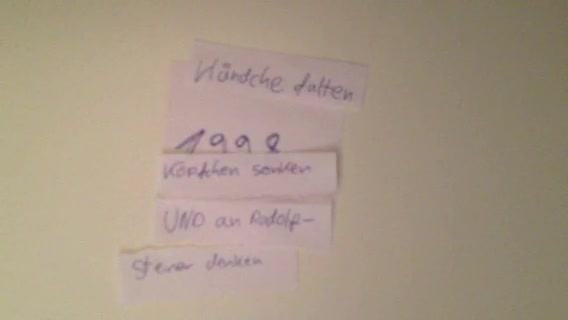 Händche falten
1998
Köpfchen senken
UND an Rudolf-
steiner denken